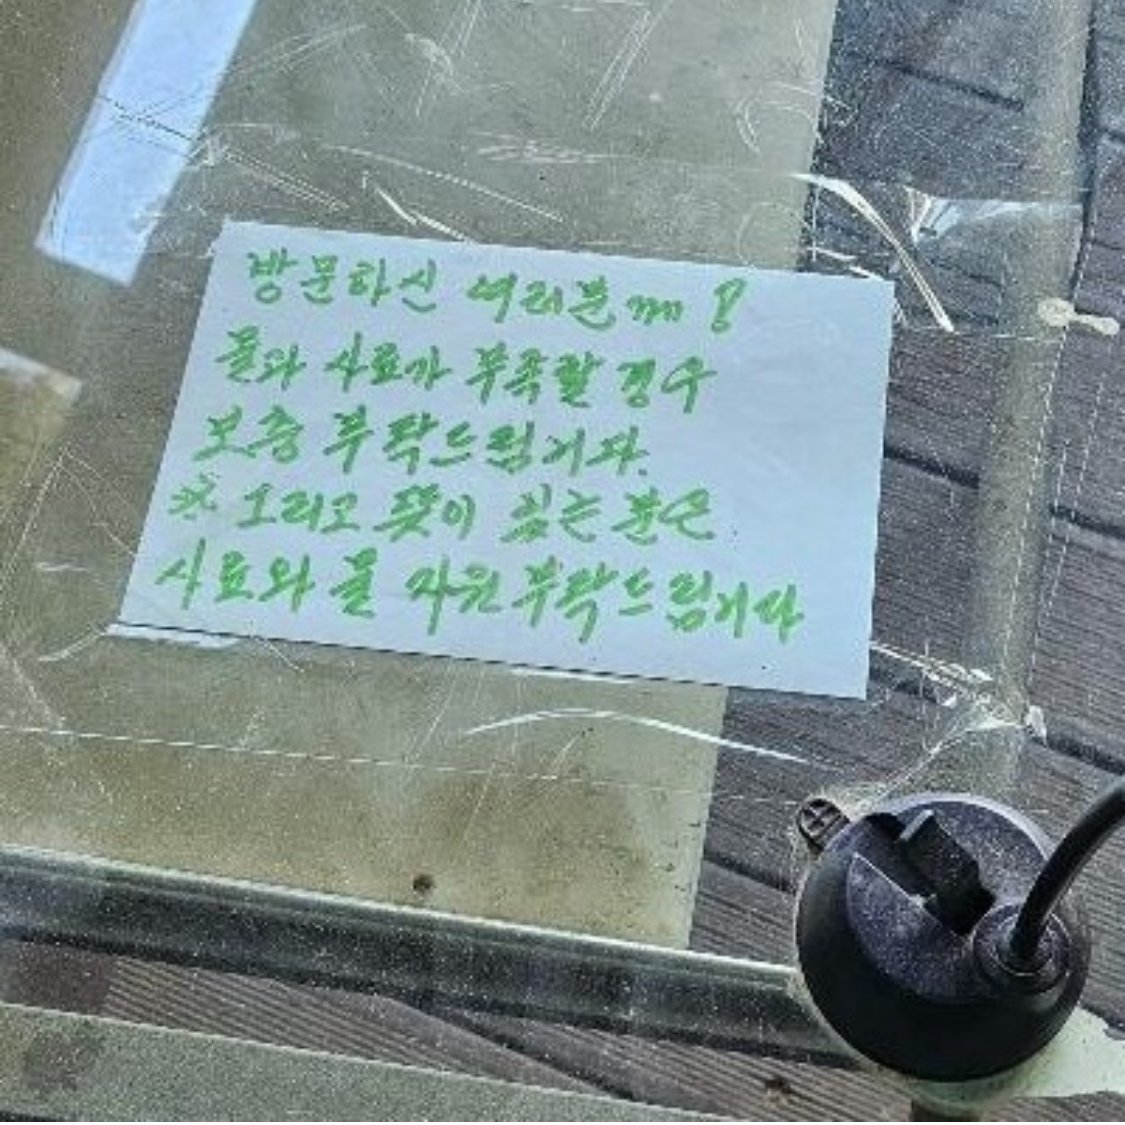 방문하신 여러분께!
물과 사료가 부족할 경우
보충 부탁드립니다.
※ 그리고 뜻이 있는 분은
사료와 물 자원 부탁드립니다